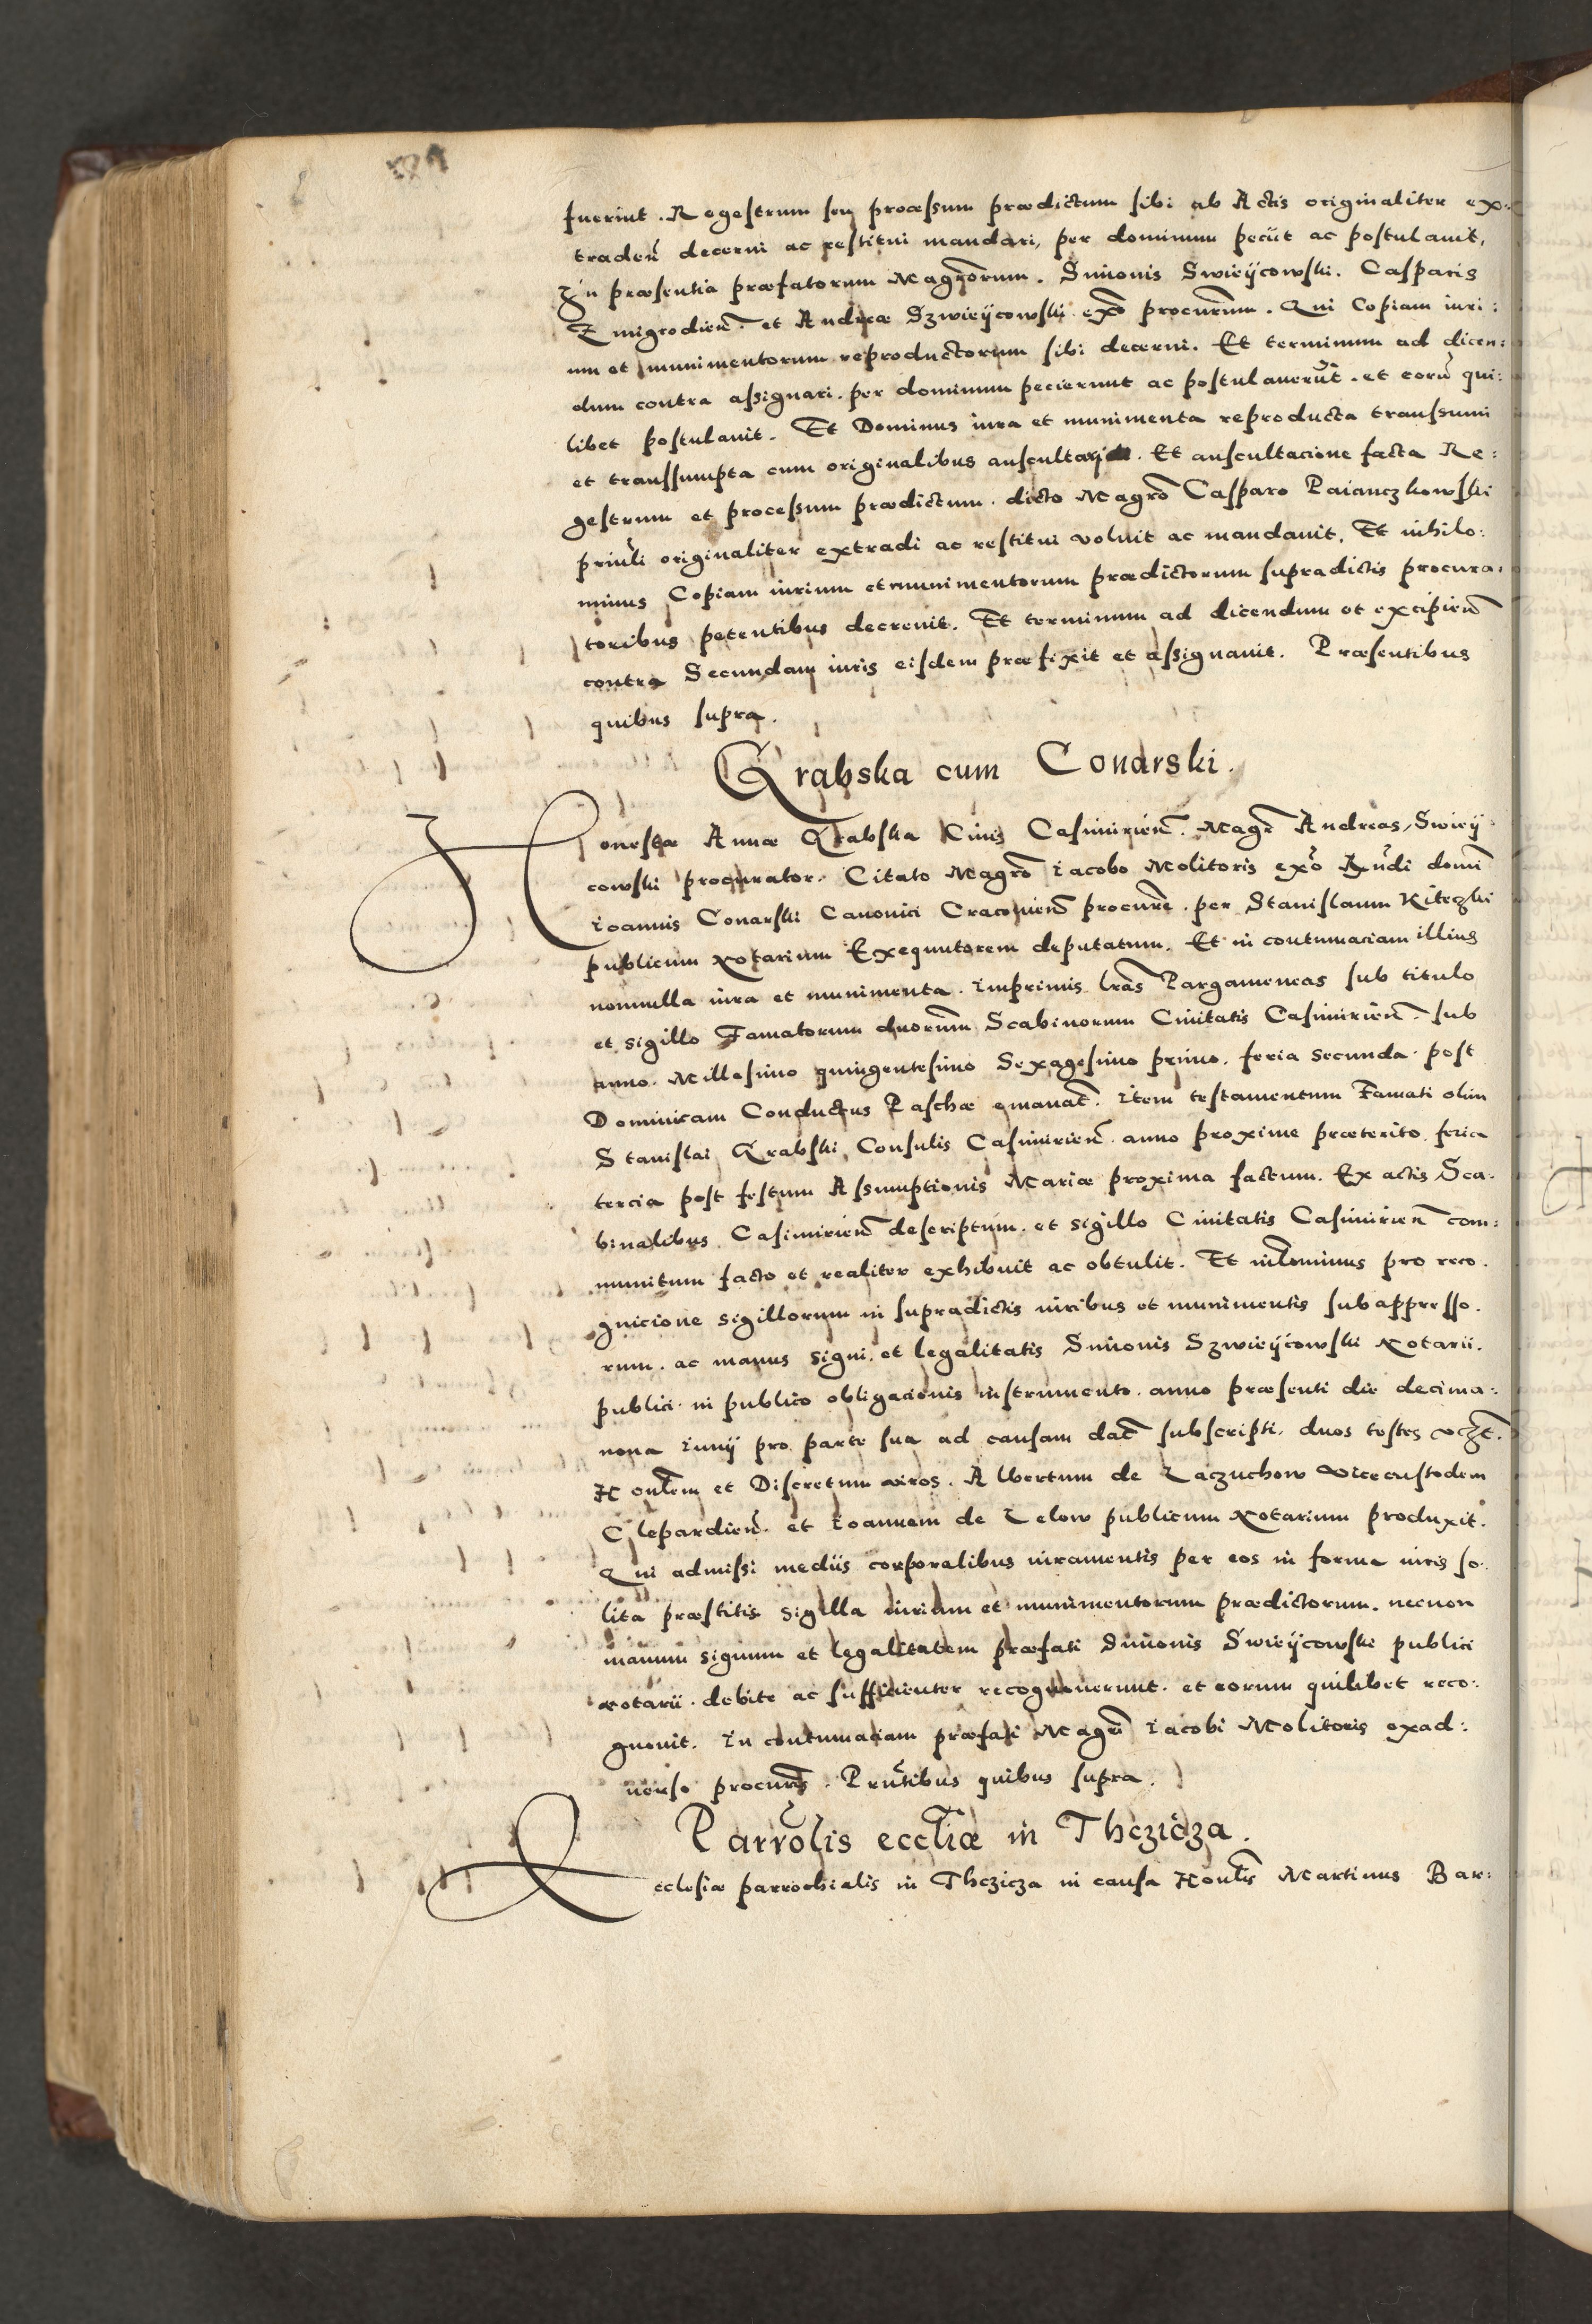 fuerint. Regestrum seu processum prædictum sibi ab Actis originaliter ex:
traden̄ decerni ac restitui mandari, per dominum peciit ac postulauit,
In præsentia præfatorum Magr̄orum. Simonis Swieÿcowski. Casparis
Zmigrodien̄. et Andreæ Szwieÿcowski exo̅ procurm̄. Qui Copiam iuri:
um et munimentorum reproductorum sibi decerni. Et terminum ad dicen:
dum contra assignari. per dominum pecierunt ac postulauerūt. et eorū qui:
libet postulauit. Et Dominus iura et munimenta reproducta transsumi
et transsumpta cum originalibus auscultari. Et auscultacione facta Re:
gestrum et processum prædictum. dicto Magr̄o Casparo Paianczkowski
prin̄li originaliter extradi ac restitui voluit ac mandauit, Et nihilo:
minus Copiam iurium et munimentorum prædictorum supradictis procura:
toribus petentibus decreuit. Et terminum ad dicendum et excipien̄
contra Secundam iuris eisdem præfixit et assignauit. Præsentibus
quibus supra.
Grabska cum Conarski.
Honestæ Annæ Grabska Ciuis Casimirien̄. Magr̄ Andreas Swieÿ:
cowski procurator. Citato Magr̄o Iacobo Molitoris exo̅ Rn̄di domi̅
Ioannis Conarski Canonici Cracouien̄ procure̅. per Stanislaum Kiteczki
publicum Notarium Exequutorem deputatum. Et in contumaciam illius
nonnulla iura et munimenta. Imprimis lrās Pargameneas sub titulo
et sigillo Famatorum duorum Scabinorum Ciuitatis Casimirien̄. sub
anno. Millesimo quingentesimo Sexagesimo primo. feria secunda. post
Dominicam Conductus Paschæ emanat̄. Item testamentum Famati olim
Stanislai Grabski, Consulis Casimirien̄. anno proxime præterito. feria
tercia post festum Assumptionis Mariæ proxima factum. Ex actis Sca:
binalibus Casimirien̄ descriptum. et sigillo Ciuitatis Casimirien̄ com:
munitum facto et realiter exhibuit ac obtulit. Et nih̄lominus pro reco:
gnicione sigillorum in supradictis iuribus et munimentis subappresso:
rum. ac manus signi. et legalitatis Simonis Szwieÿcowski Notarii.
publici. in publico obligacionis instrumento. anno præsenti die decima:
nona Iunÿ pro parte sua ad causam dat̄ subscripti. duos testes vczt̄.
Honl̄em et Discretum viros. Albertum de Laczuchow Vicecustodem
Clepardien̄. et Ioannem de Lelow publicum Notarium produxit.
Qui admissi mediis corporalibus iuramentis per eos in forma iuris so:
lita præstitis sigilla iurium et munimentorum prædictorum. necnon
manum signum et legalitatem præfati Simonis Swieÿcowski publici
Notarii. debite ac sufficienter recognouerunt. et eorum quilibet reco:
gnouit. In contumaciam præfati Magr̄i Iacobi Molitoris exad:
uerso procurīs. Prn̄tibus quibus supra.
Parrōlis eccl̄iæ in Thczicza.
Ecclesiæ parrochialis in Thczicza in causa Honl̄is Martinus Bar: